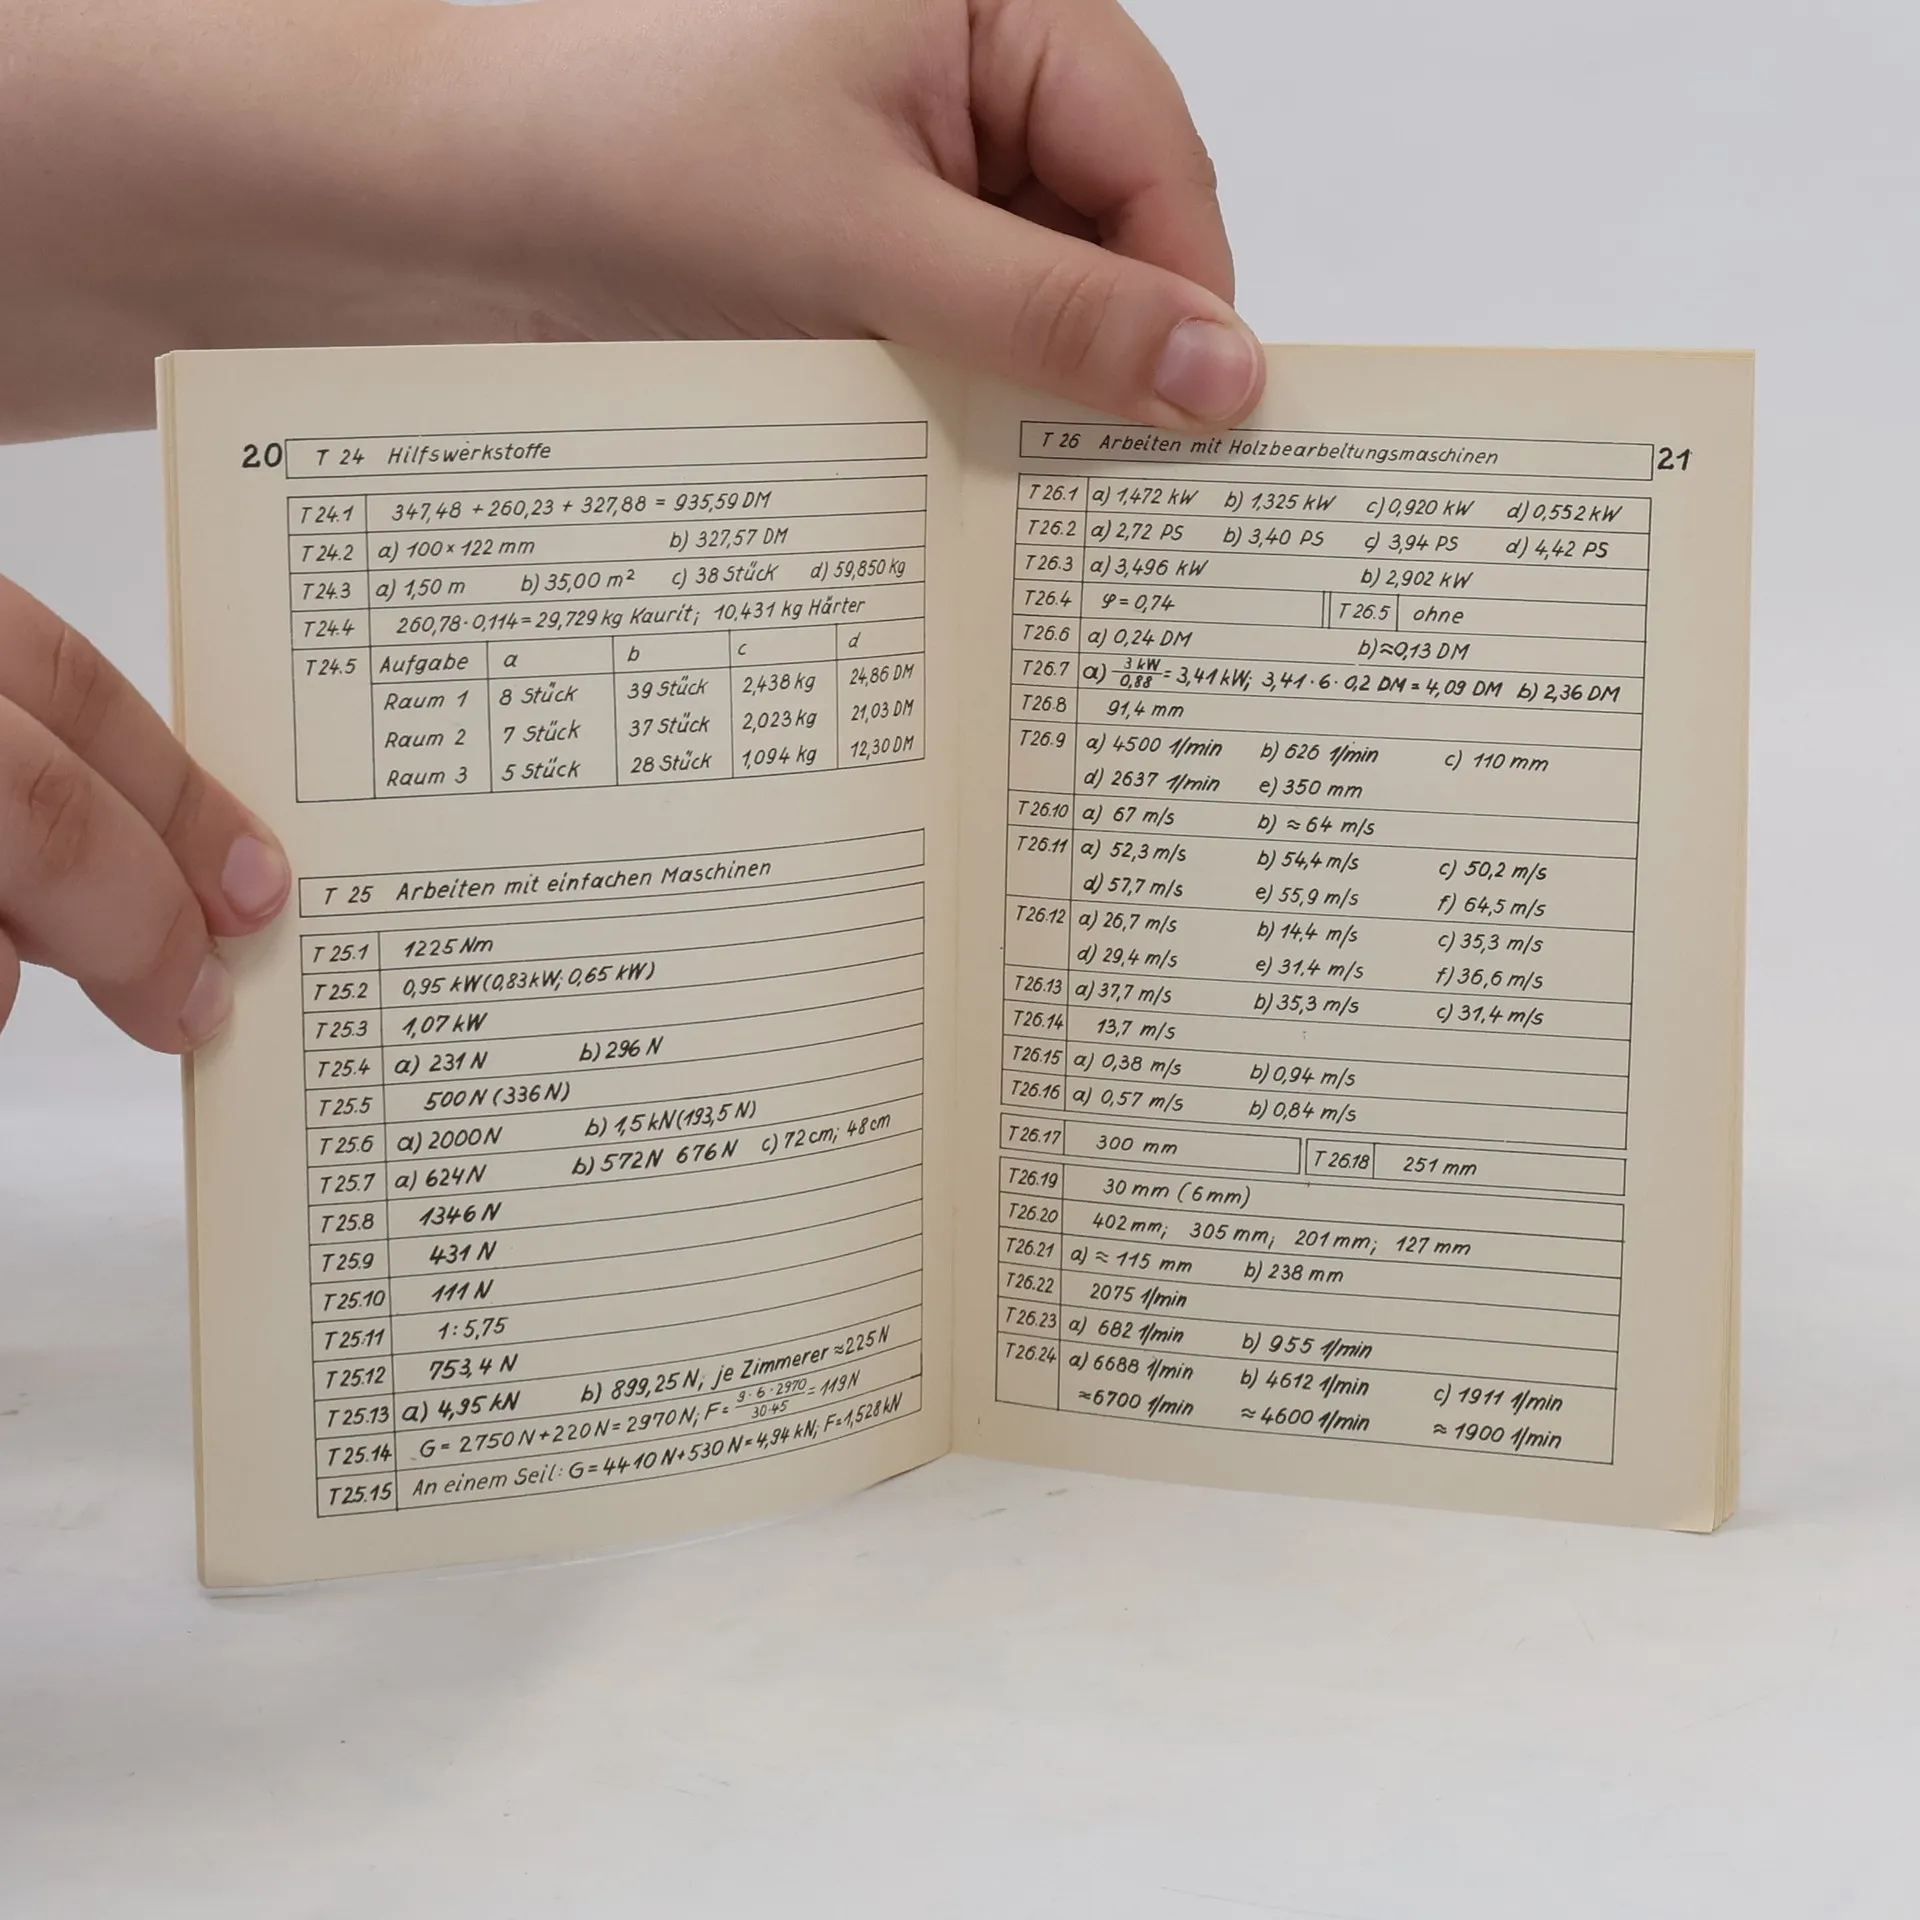 20
T 24 Hilfswerkstoffe
T 24.1 347,48 + 260,23 + 327,88 = 935,59 DM
T 24.2 a) 100 × 122 mm b) 327,57 DM
T 24.3 a) 1,50 m b) 35,00 m² c) 38 Stück d) 59,850 kg
T 24.4 260,78 · 0,114 = 29,729 kg Kaurit; 10,431 kg Härter
T 24.5 Aufgabe a b c d
Raum 1 8 Stück 39 Stück 2,438 kg 24,86 DM
Raum 2 7 Stück 37 Stück 2,023 kg 21,03 DM
Raum 3 5 Stück 28 Stück 1,094 kg 12,30 DM
T 25 Arbeiten mit einfachen Maschinen
T 25.1 1225 Nm
T 25.2 0,95 kW (0,83 kW; 0,65 kW)
T 25.3 1,07 kW
T 25.4 a) 231 N b) 296 N
T 25.5 500 N (336 N)
T 25.6 a) 2000 N b) 1,5 kN (193,5 N)
T 25.7 a) 624 N b) 572 N 676 N c) 72 cm; 48 cm
T 25.8 1346 N
T 25.9 431 N
T 25.10 111 N
T 25.11 1:5,75
T 25.12 753,4 N
T 25.13 a) 4,95 kN b) 899,25 N; je Zimmerer ≈ 225 N
T 25.14 G = 2750 N + 220 N = 2970 N; F = 9 · 6 · 2970 / 30·45 = 119 N
T 25.15 An einem Seil: G = 4410 N + 530 N = 4,94 kN; F = 1,528 kN
T 26 Arbeiten mit Holzbearbeitungsmaschinen
21
T 26.1 a) 1,472 kW b) 1,325 kW c) 0,920 kW d) 0,552 kW
T 26.2 a) 2,72 PS b) 3,40 PS c) 3,94 PS d) 4,42 PS
T 26.3 a) 3,496 kW b) 2,902 kW
T 26.4 φ = 0,74 T 26.5 ohne
T 26.6 a) 0,24 DM b) ≈ 0,13 DM
T 26.7 a) 3 kW / 0,88 = 3,41 kW; 3,41 · 6 · 0,2 DM = 4,09 DM b) 2,36 DM
T 26.8 91,4 mm
T 26.9 a) 4500 1/min b) 626 1/min c) 110 mm
d) 2637 1/min e) 350 mm
T 26.10 a) 67 m/s b) ≈ 64 m/s
T 26.11 a) 52,3 m/s b) 54,4 m/s c) 50,2 m/s
d) 57,7 m/s e) 55,9 m/s f) 64,5 m/s
T 26.12 a) 26,7 m/s b) 14,4 m/s c) 35,3 m/s
d) 29,4 m/s e) 31,4 m/s f) 36,6 m/s
T 26.13 a) 37,7 m/s b) 35,3 m/s c) 31,4 m/s
T 26.14 13,7 m/s
T 26.15 a) 0,38 m/s b) 0,94 m/s
T 26.16 a) 0,57 m/s b) 0,84 m/s
T 26.17 300 mm T 26.18 251 mm
T 26.19 30 mm (6 mm)
T 26.20 402 mm; 305 mm; 201 mm; 127 mm
T 26.21 a) ≈ 115 mm b) 238 mm
T 26.22 2075 1/min
T 26.23 a) 682 1/min b) 955 1/min
T 26.24 a) 6688 1/min b) 4612 1/min c) 1911 1/min
≈ 6700 1/min ≈ 4600 1/min ≈ 1900 1/min